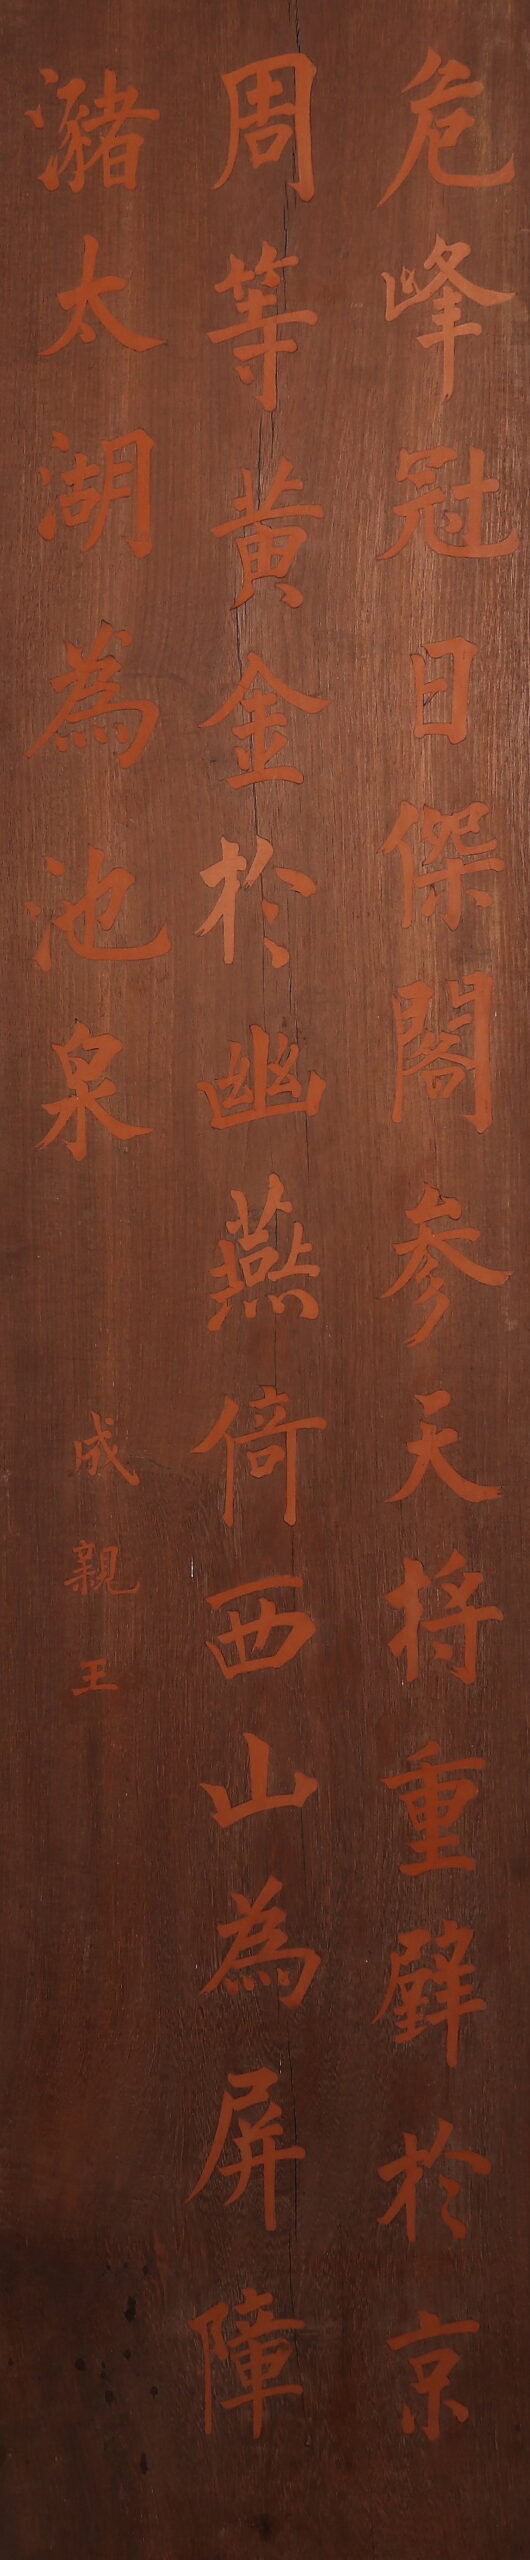 危峰冠日傑閣参天将重壁於京
周等黄金於幽燕倚西山為屏障
瀦太湖為池泉
成親王